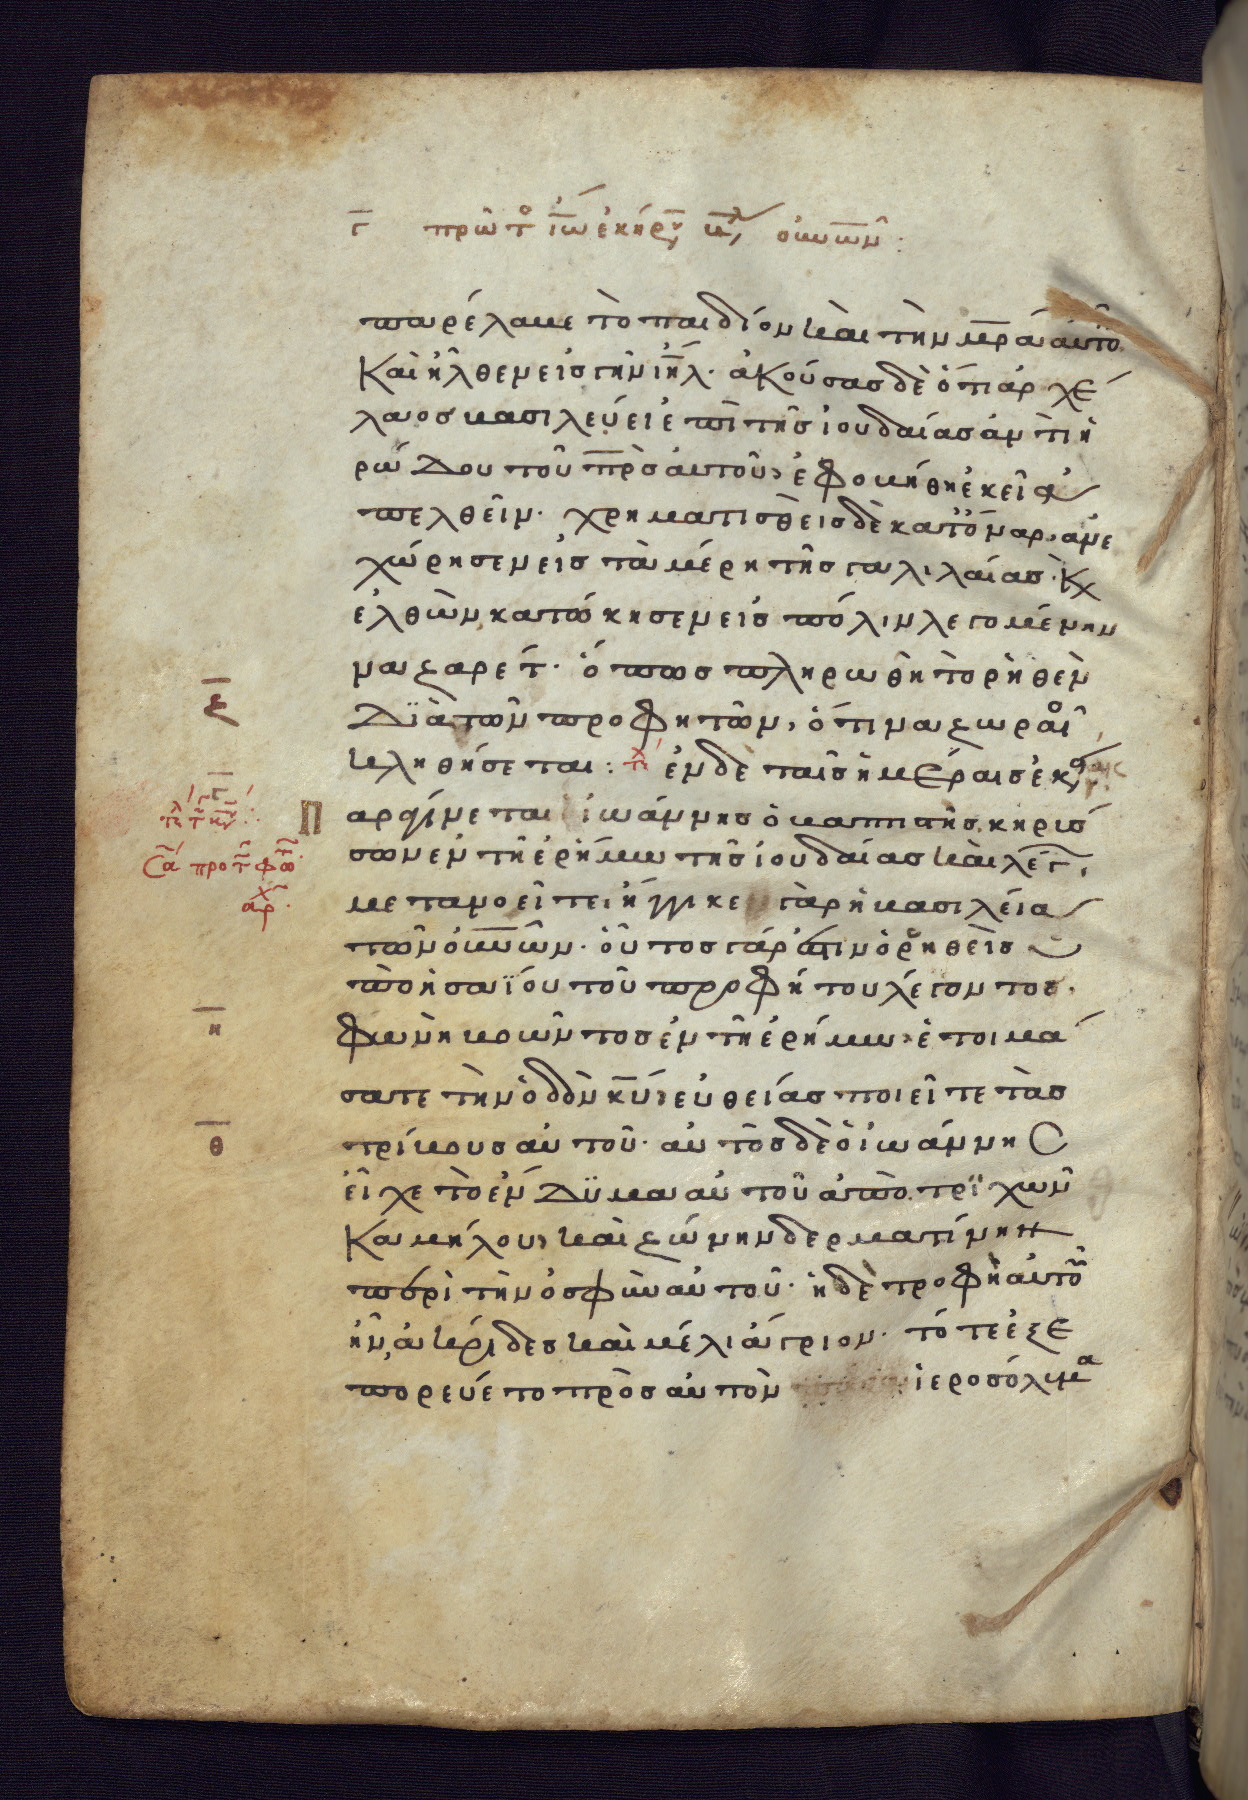 γ πρῶτο ἰω ἐκήρυ βα οὐνῶν:
παρέλαβε τὸ παιδίον καὶ τὴν μρα αὐτοῦ
Καὶ ἦλθεν εἰς γῆν ιηλ· ἀκούσας δὲ ὅτι ἀρχέ
λαος βασιλεύει ἐπὶ τῆς ἰουδαίας ἀντὶ ἡ
ρώδου τοῦ πρς αὐτοῦ, ἐφοβήθη ἐκεῖ ἀ
πελθεῖν· χρηματισθεὶς δὲ κατ ὄναρ, ἀνε
χώρησεν εἰς τὰ μέρη τῆς γαλιλαίας· Κ
ἐλθὼν κατώκησεν εἰς πόλιν λεγομένην
ναζαρέτ· ὅπως πληρωθῆ τὸ ρηθὲν
ζ
Διὰ τῶν προφητῶν, ὅτι ναζωραῖ
κληθήσεται: ἐν δὲ ταῖς ἡμέραις ἐκ
Π αραγίνεται ἰωάννης ὁ βαπτιστὴς κηρύσ
σων ἐν τῆ ἐρήμω τῆς ἰουδαίας καὶ λέγ
Σα προ τ φω
μετανοεῖτε, ἤγγικε γὰρ ἡ βασιλεία
τῶν οὐνῶν· οὗτος γάρ ἐστιν ὁ ρηθεὶς ὑ
πὸ ἡσαΐου τοῦ προφήτου λέγοντος·
η
Φωνὴ βοῶντος ἐν τῆ ἐρήμω, ἑτοιμά
σατε τὴν ὁδὸν κυ, εὐθείας ποιεῖτε τὰς
θ
τρίβους αὐτοῦ· αὐτὸς δὲ ὁ ἰωάννης
εἶχε τὸ ἔνδυμα αὐτοῦ ἀπὸ τριχῶν
Καμήλου, καὶ ζώνην δερματίνην
περὶ τὴν ὀσφὺν αὐτοῦ· ἡ δὲ τροφὴ αὐτοῦ
ἦν, ἀκρίδες καὶ μέλι ἄγριον· τότε ἐξε
πορεύετο πρὸς αὐτὸν ἱεροσόλυμα